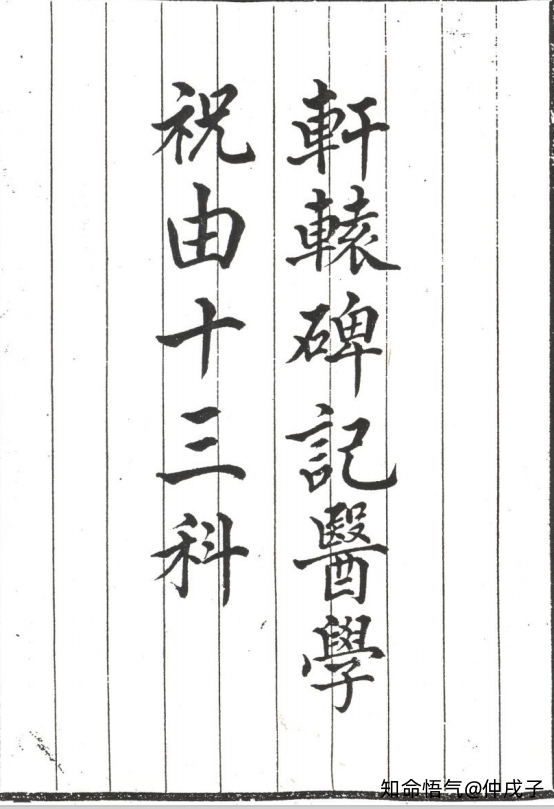 軒轅碑記醫學
祝由十三科
知命悟气@仲戌子